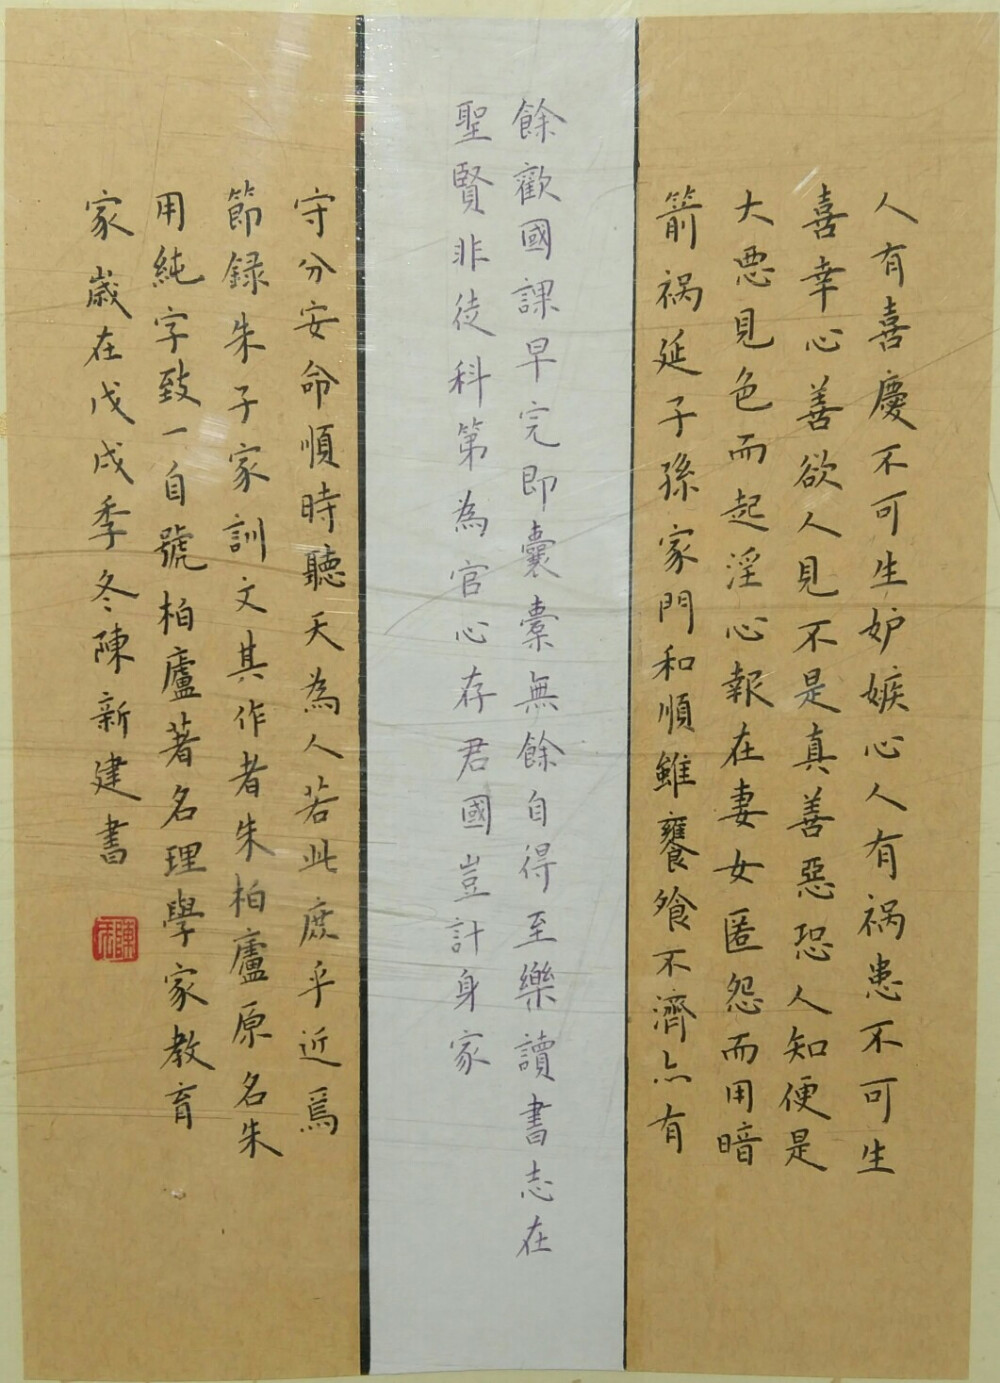 人有喜慶不可生妒嫉心人有祸患不可生
喜幸心善欲人見不是真善惡恐人知便是
大悪見色而起淫心報在妻女匿怨而用暗
箭祸延子孫家門和順雖饔飧不濟亦有
餘歡國課早完即囊橐無餘自得至樂讀書志在
聖賢非徒科第為官心存君國豈計身家
守分安命順時聽天為人若此庶乎近焉
節録朱子家訓文其作者朱柏廬原名朱
用純字致一自號柏廬著名理學家教育
家歲在戊戌季冬陳新建書